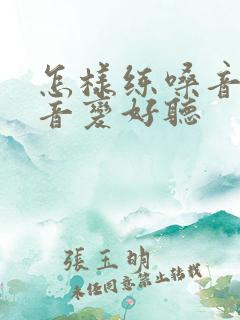 怎樣练嗓音
音變好聽
張玉明
未经同意禁止转载